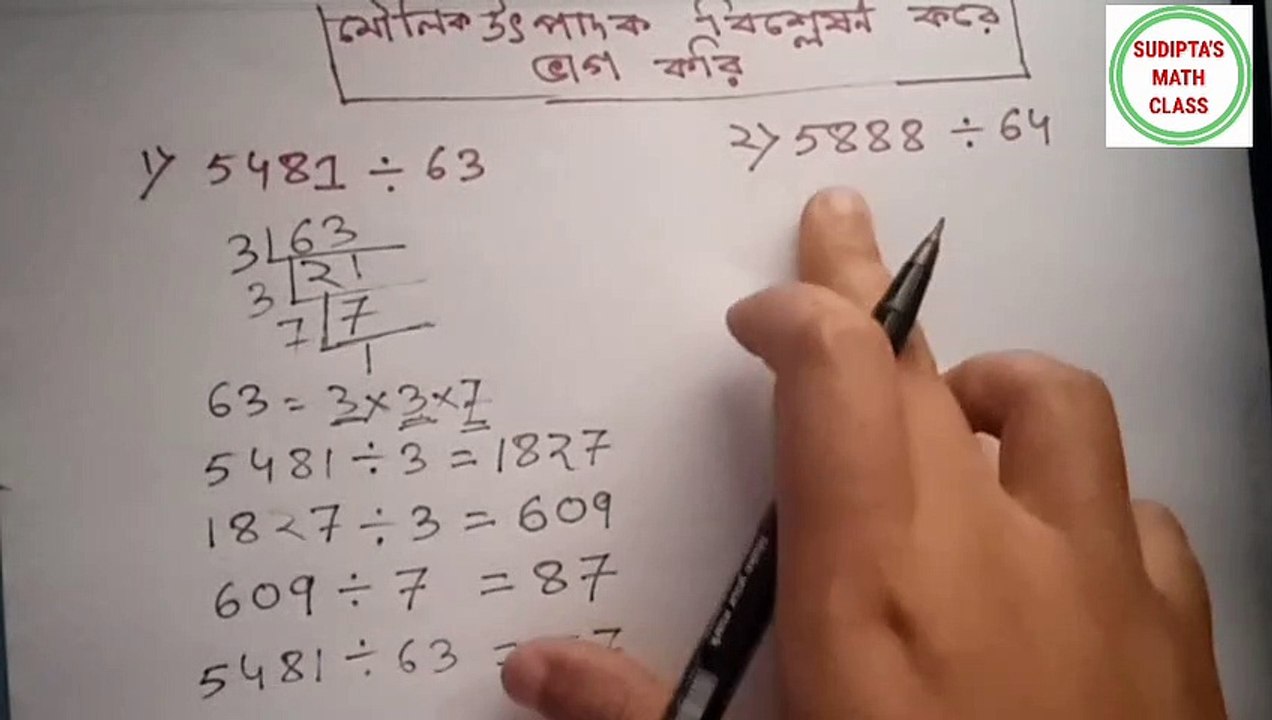 মৌলিক উৎপাদক বিশ্লেষণ করে
ভাগ করি
SUDIPTA'S
MATH
CLASS
1) 5481 ÷ 63
3 63
3 21
7 7
1
63 = 3×3×7
5481 ÷ 3 = 1827
1827 ÷ 3 = 609
609 ÷ 7 = 87
5481 ÷ 63 = 7
২) 5888 ÷ 64